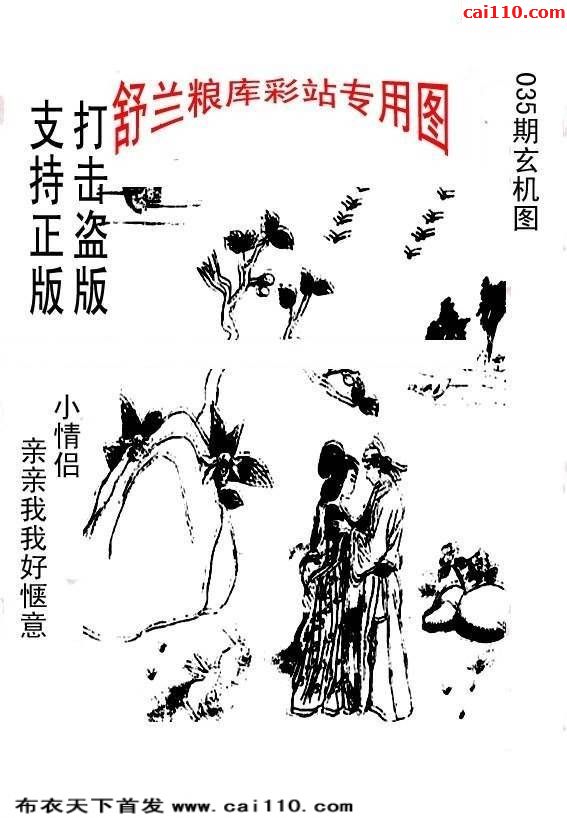 cai110.com
舒兰粮库彩站专用图
035期玄机图
打击盗版
支持正版
小情侣
亲亲我我好惬意
布衣天下首发 www.cai110.com